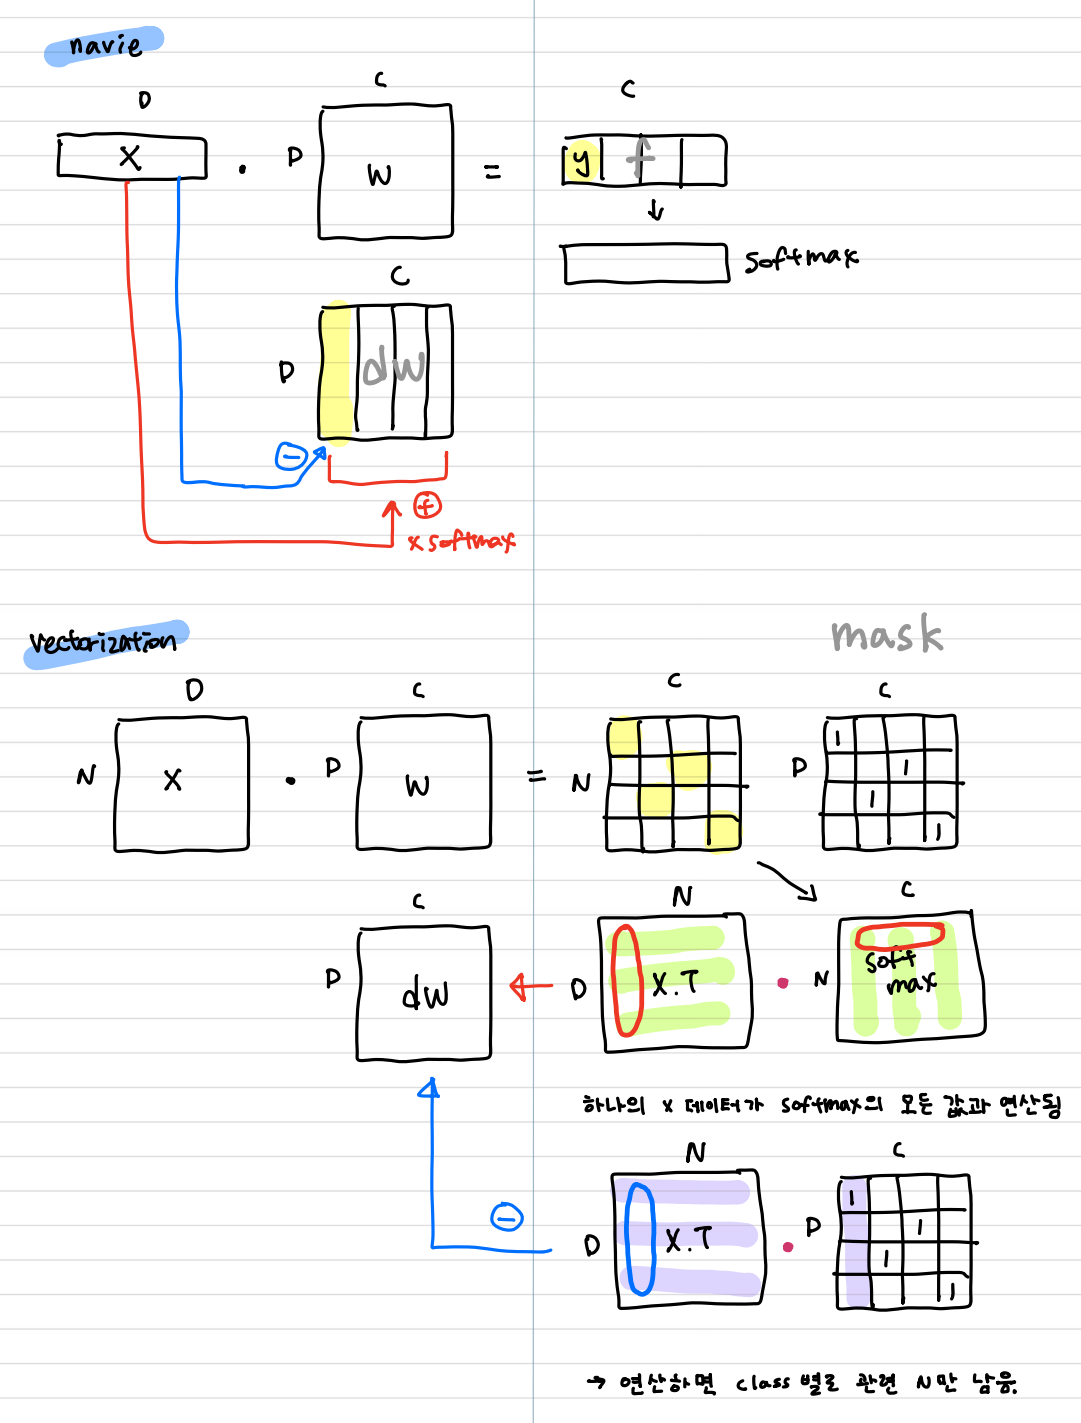 navie
D
C
C
X
.
D
W
=
y f
↓
softmax
C
D
dW
⊖
⊕
x softmax
vectorization
mask
D
C
C
C
N
X
.
D
W
=
N
D
1
1
1
1
C
D
dW
N
D
X.T
.
C
N
soft
max
하나의 x 데이터가 softmax의 모든 값과 연산됨
⊖
N
D
X.T
.
C
D
1
1
1
1
→ 연산하면 class별로 관련 N만 남음.